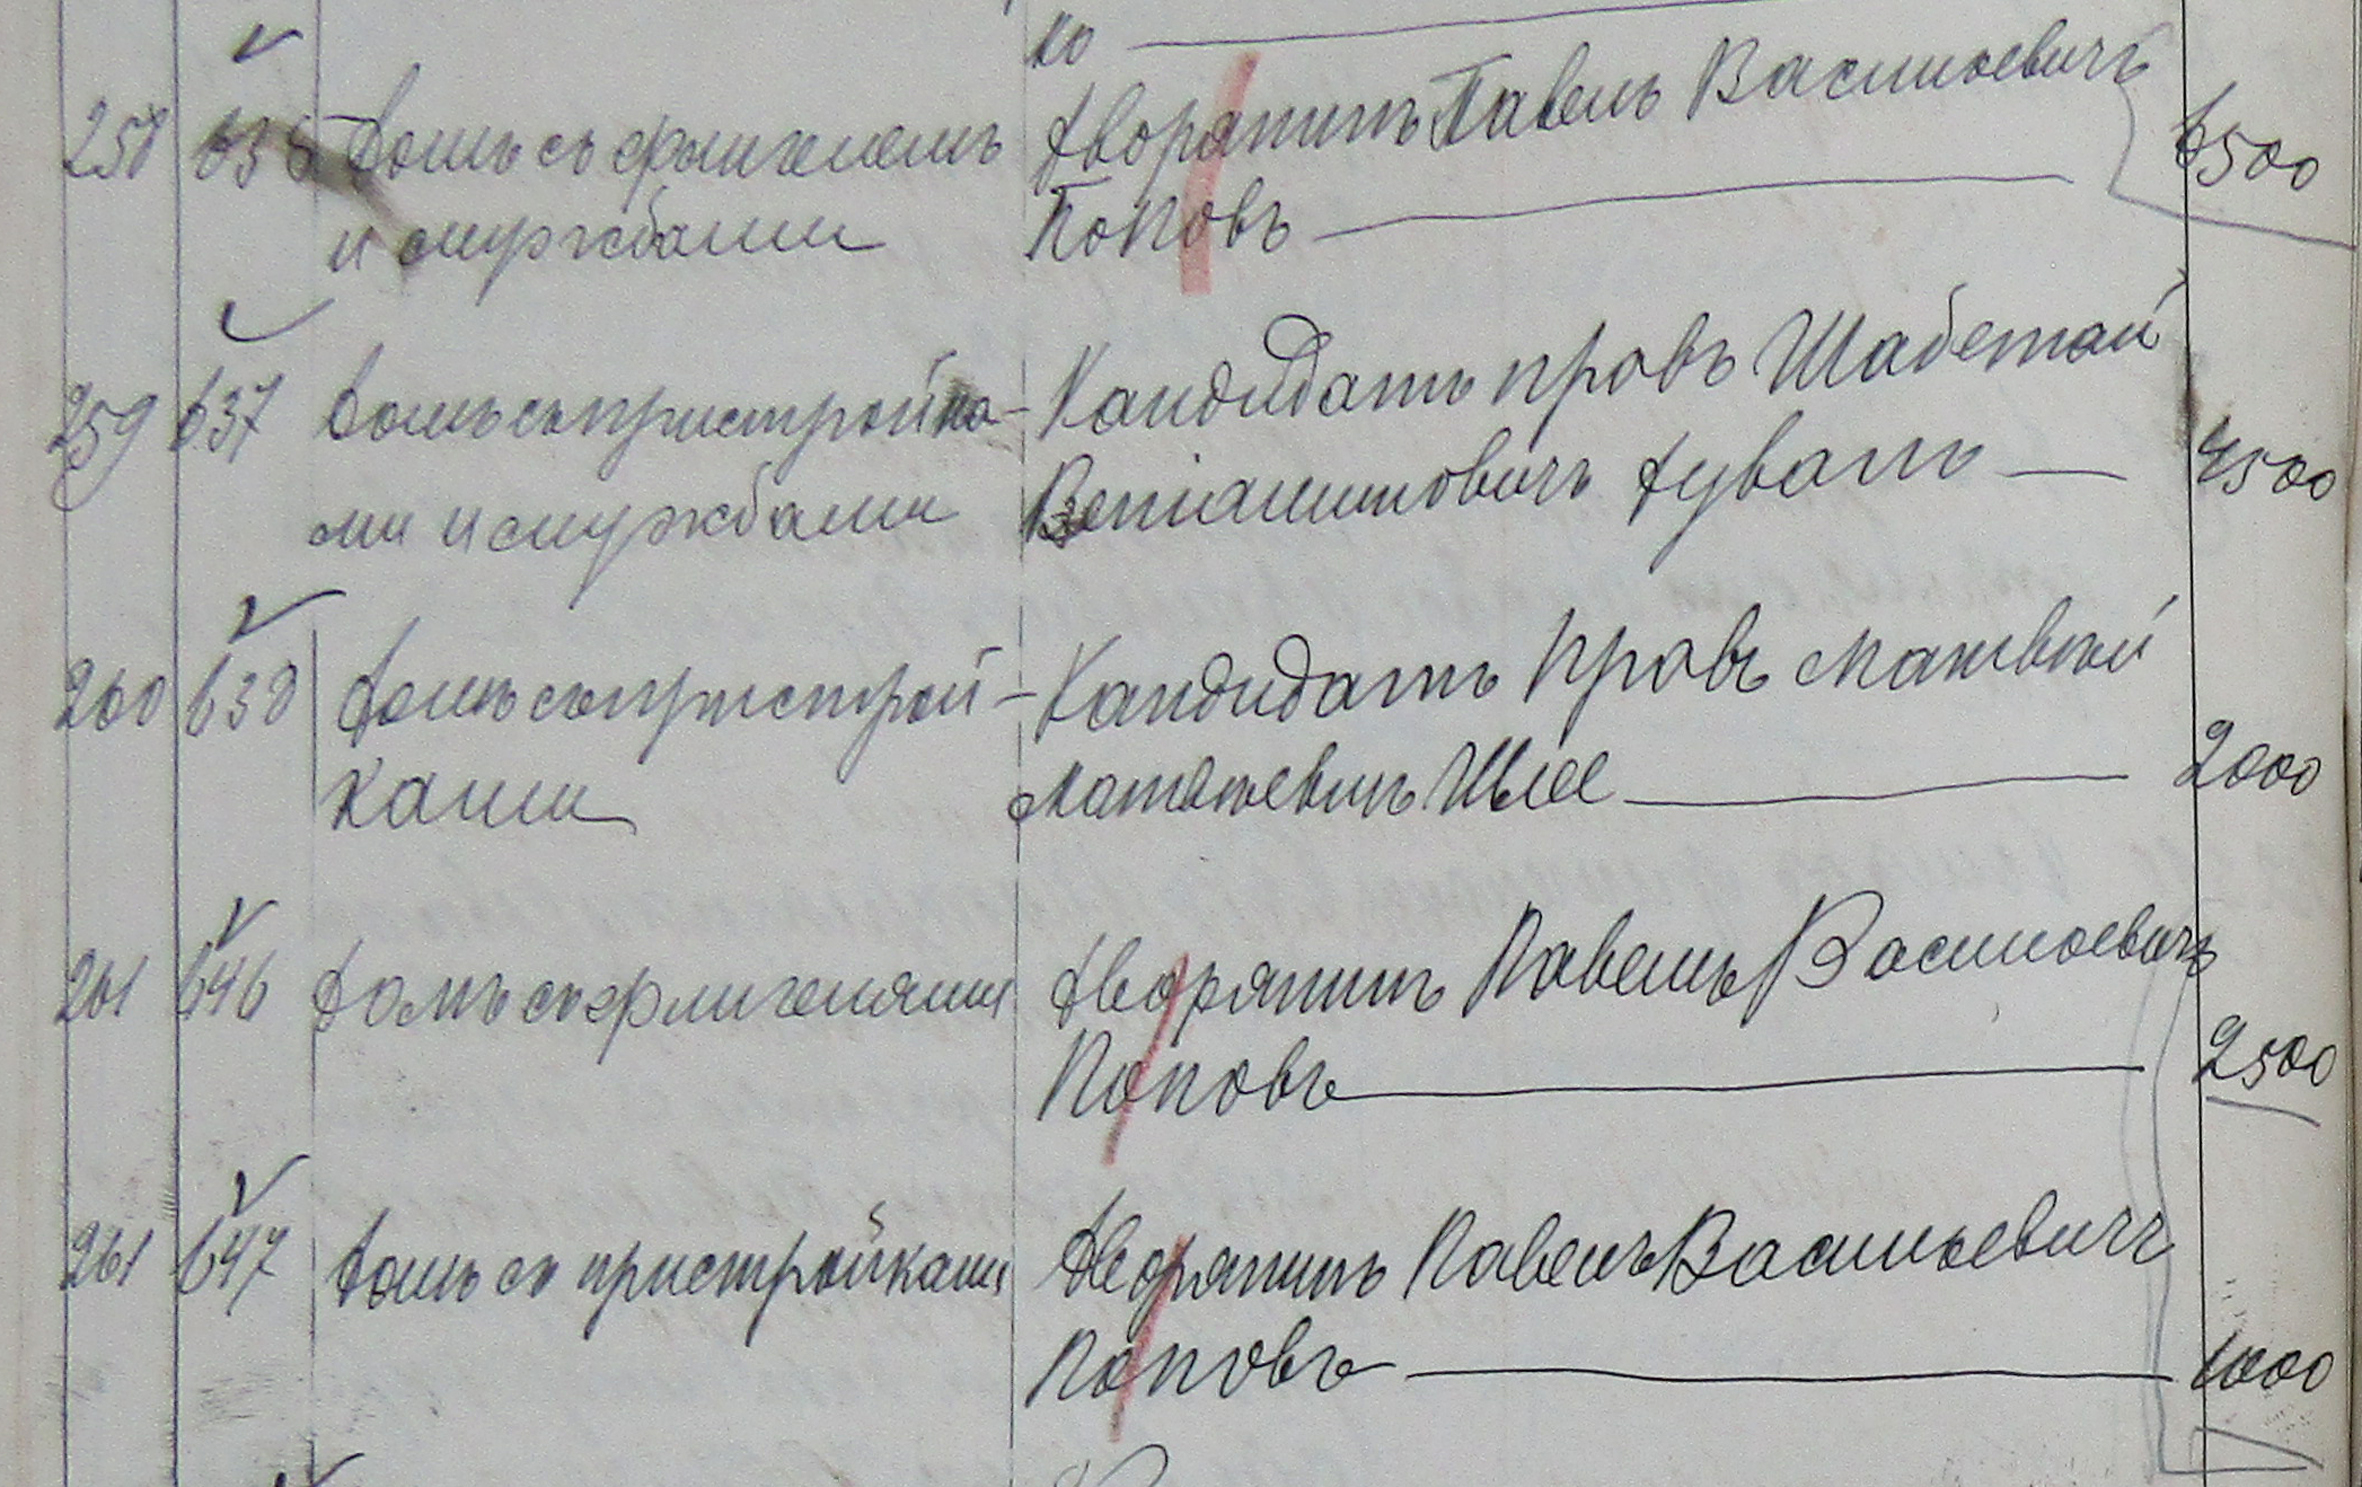 ко
258 636 Домъ съ флигелемъ Дворянинъ Павелъ Васильевичъ 6500
и службами Поповъ
259 637 Домъ съ пристройка- Кандидатъ правъ Шабетай 4500
ми и службами Веніаминовичъ Дуванъ
260 638 Домъ съ пристрой- Кандидатъ правъ Матвѣй 2000
ками Матвѣевичъ
261 646 Домъ съ флигелями Дворянинъ Павелъ Васильевичъ 2500
Поповъ
261 647 Домъ съ пристройками Дворянинъ Павелъ Васильевичъ 1000
Поповъ